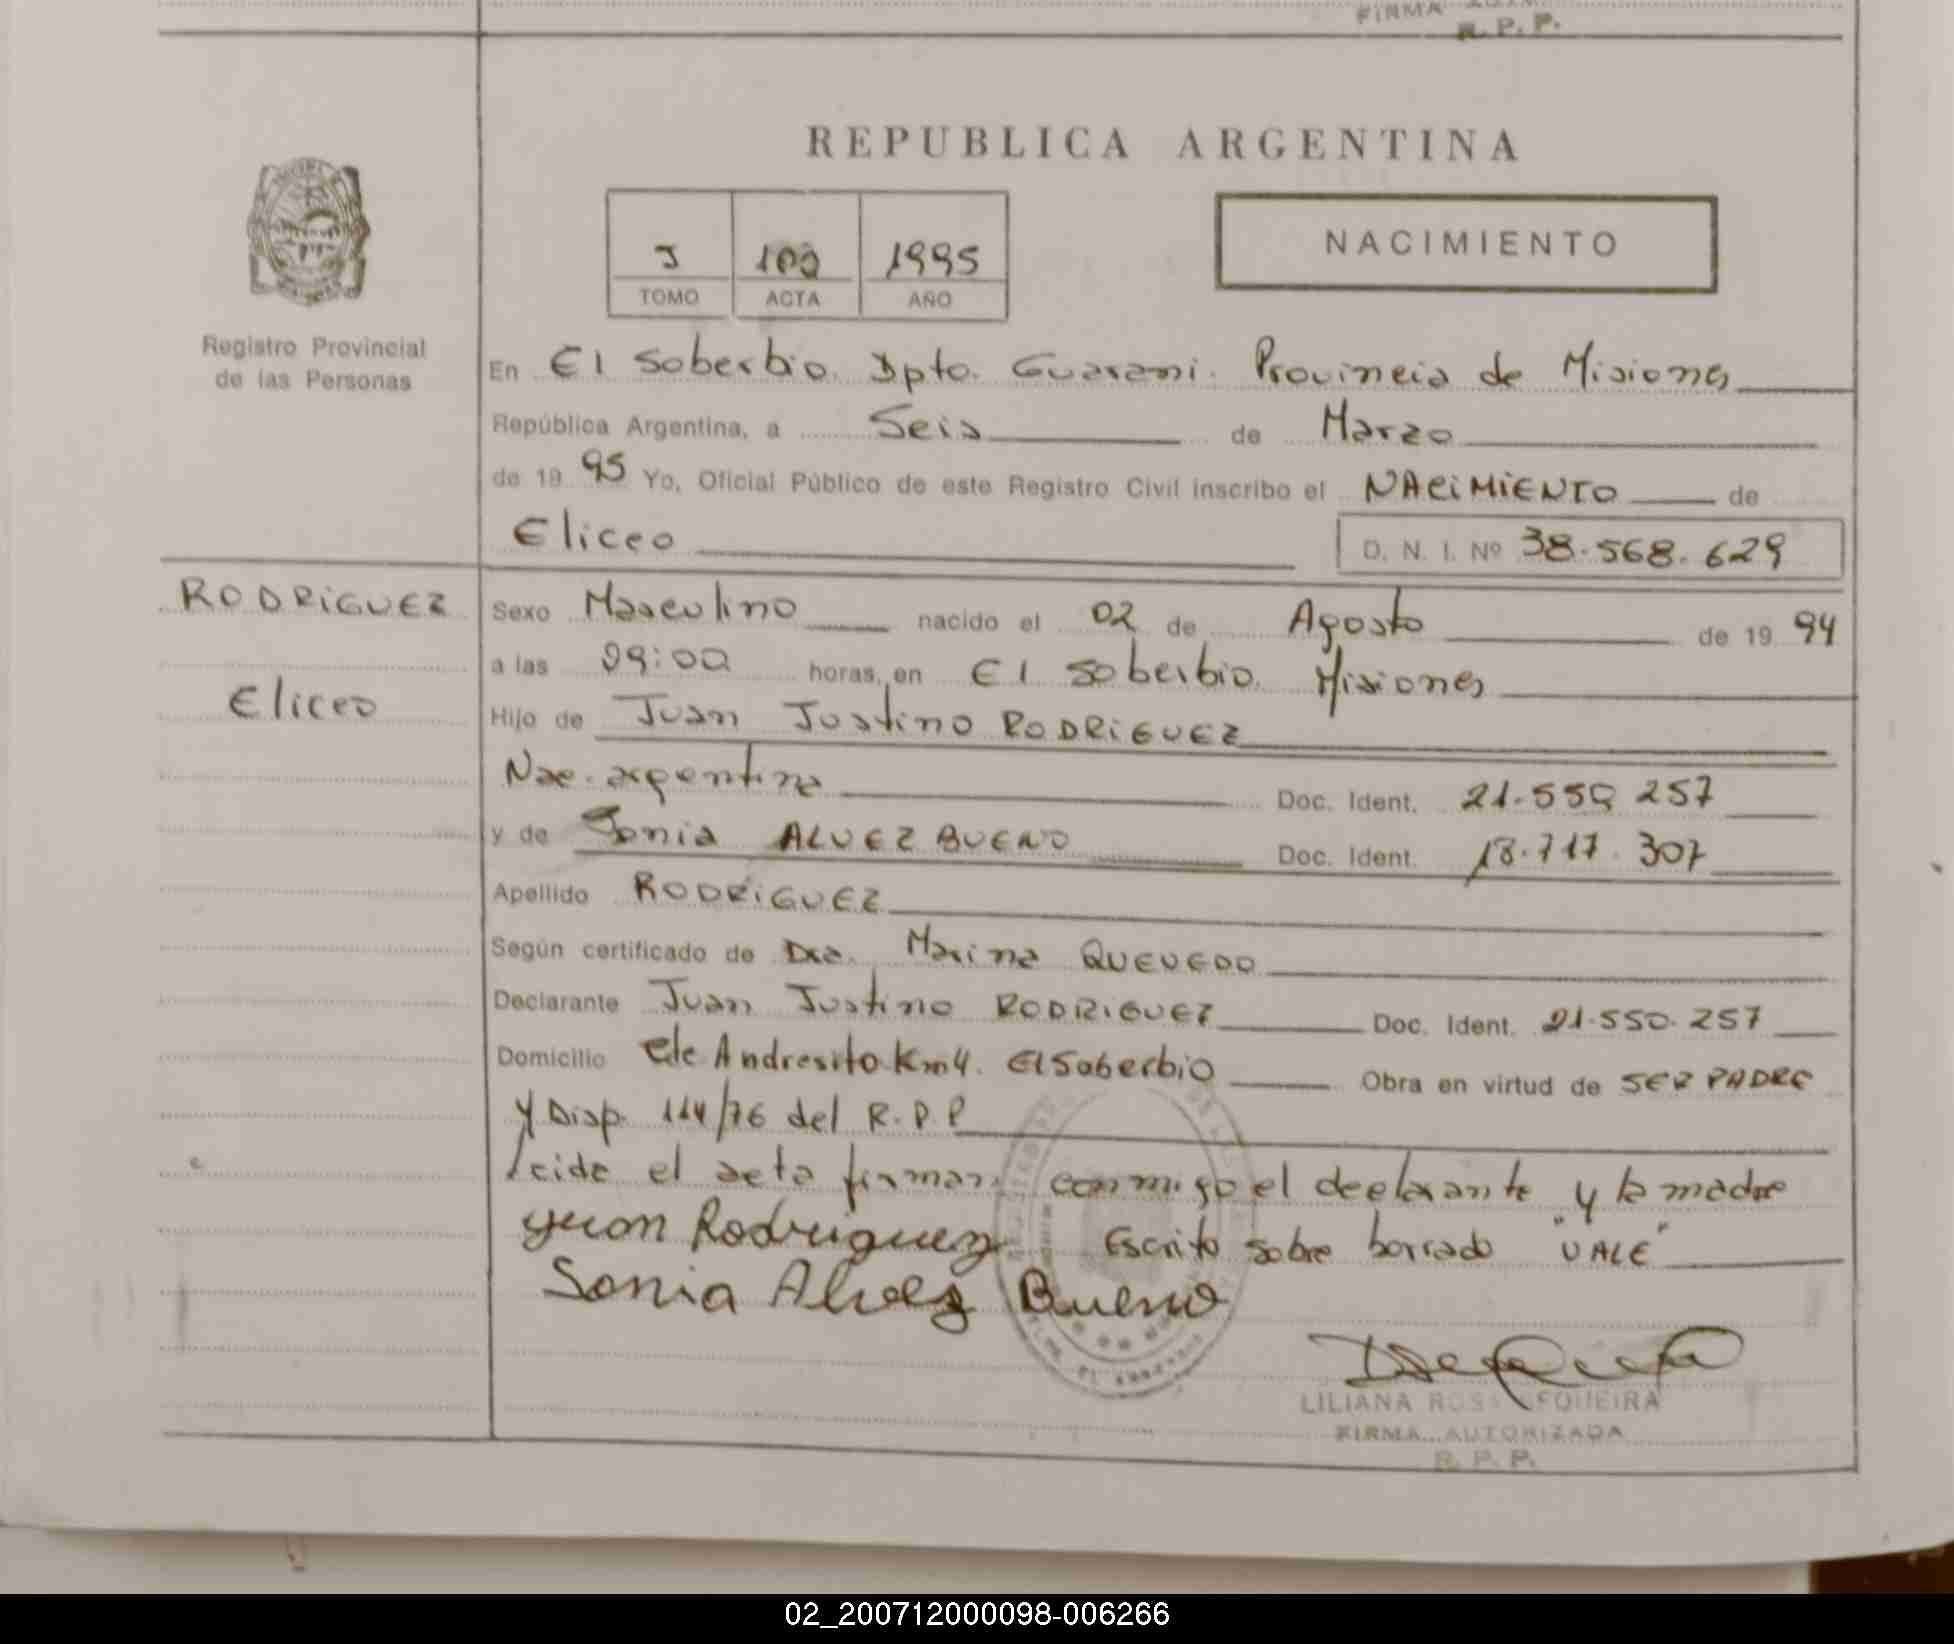 FIRMA
R. P. P.
REPUBLICA ARGENTINA
NACIMIENTO
1995
TOMO ACTA AÑO
Registro Provincial
de las Personas
En El Soberbio. Dpto. Guarani. Provincia de Misiones
República Argentina, a Seis de Marzo
de 19 95 Yo, Oficial Público de este Registro Civil inscribo el NACIMIENTO de
Eliceo D. N. I. Nº 38.568.629
RODRIGUEZ
Eliceo
Sexo Masculino nacido el 02 de Agosto de 19 94
a las 09:00 horas, en El Soberbio. Misiones
Hijo de Juan Justino RODRIGUEZ
Nac. argentina Doc. Ident. 21.550 257
y de Sonia ALVEZ BUENO Doc. Ident. 18.717.307
Apellido RODRIGUEZ
Según certificado de Dra. Marina QUEVEDO
Declarante Juan Justino RODRIGUEZ Doc. Ident. 21.550.257
Domicilio Cde Andresito Km4. El Soberbio Obra en virtud de SER PADRE
y Disp. 114/76 del R.P.P
leida el acta firman conmigo el declarante y la madre
Juan Rodriguez Escrito sobre borrado "VALE"
Sonia Alvez Bueno
LILIANA
FIRMA AUTORIZADA
R. P. P.
02_200712000098-006266